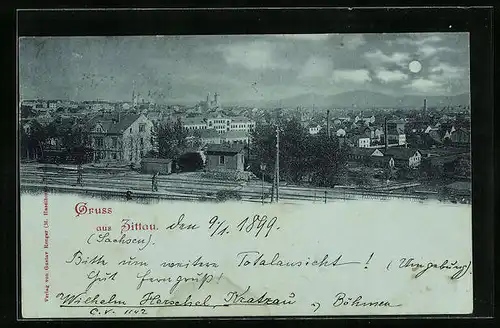 Gruss
aus Zittau. den 9/1. 1899.
(Sachsen)
Bitte um weitere Totalansicht! (Umgebung)
Gut Ferngruß!
Wilhelm Herschel, Kratzau, Böhmen
C.V. 1142
Verlag von Gustav